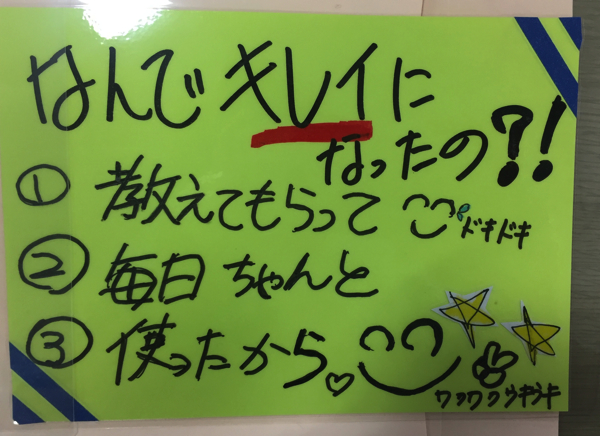 なんでキレイに
なったの?!
① 教えてもらって
ドキドキ
② 毎日ちゃんと
③ 使ったから♡
ワクワクウキウキ